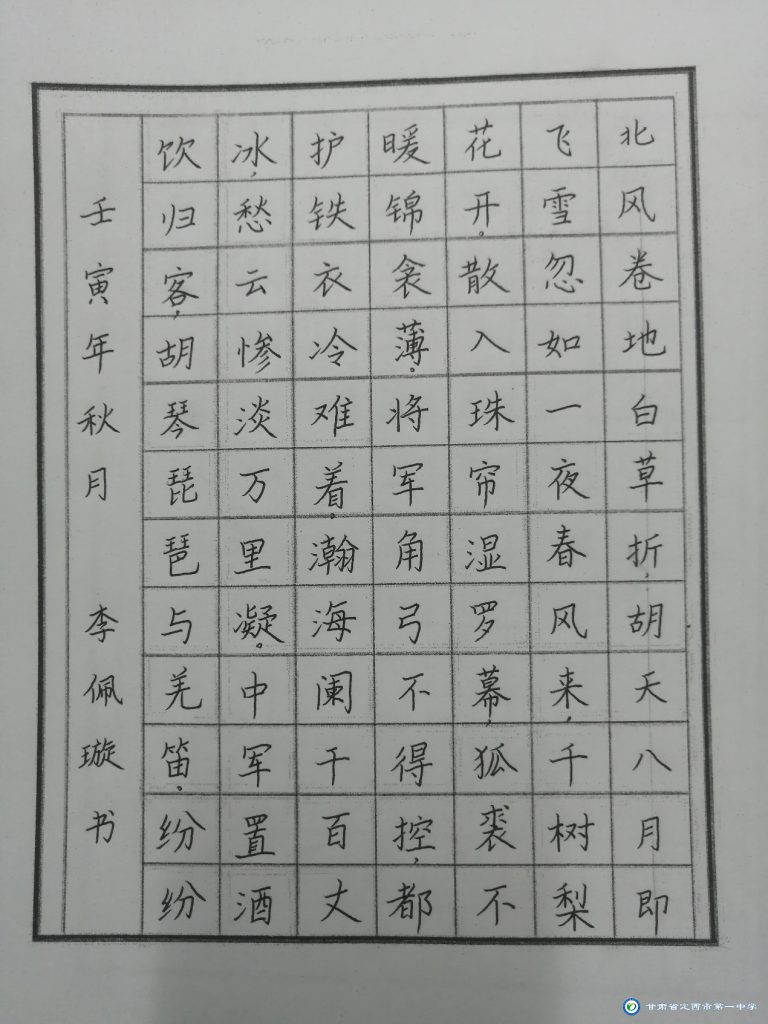 北风卷地白草折，胡天八月即
飞雪忽如一夜春风来，千树梨
花开。散入珠帘湿罗幕，狐裘不
暖锦衾薄。将军角弓不得控，都
护铁衣冷难着。瀚海阑干百丈
冰，愁云惨淡万里凝。中军置酒
饮归客，胡琴琵琶与羌笛。纷纷
壬寅年秋月 李佩璇书
甘肃省定西市第一中学